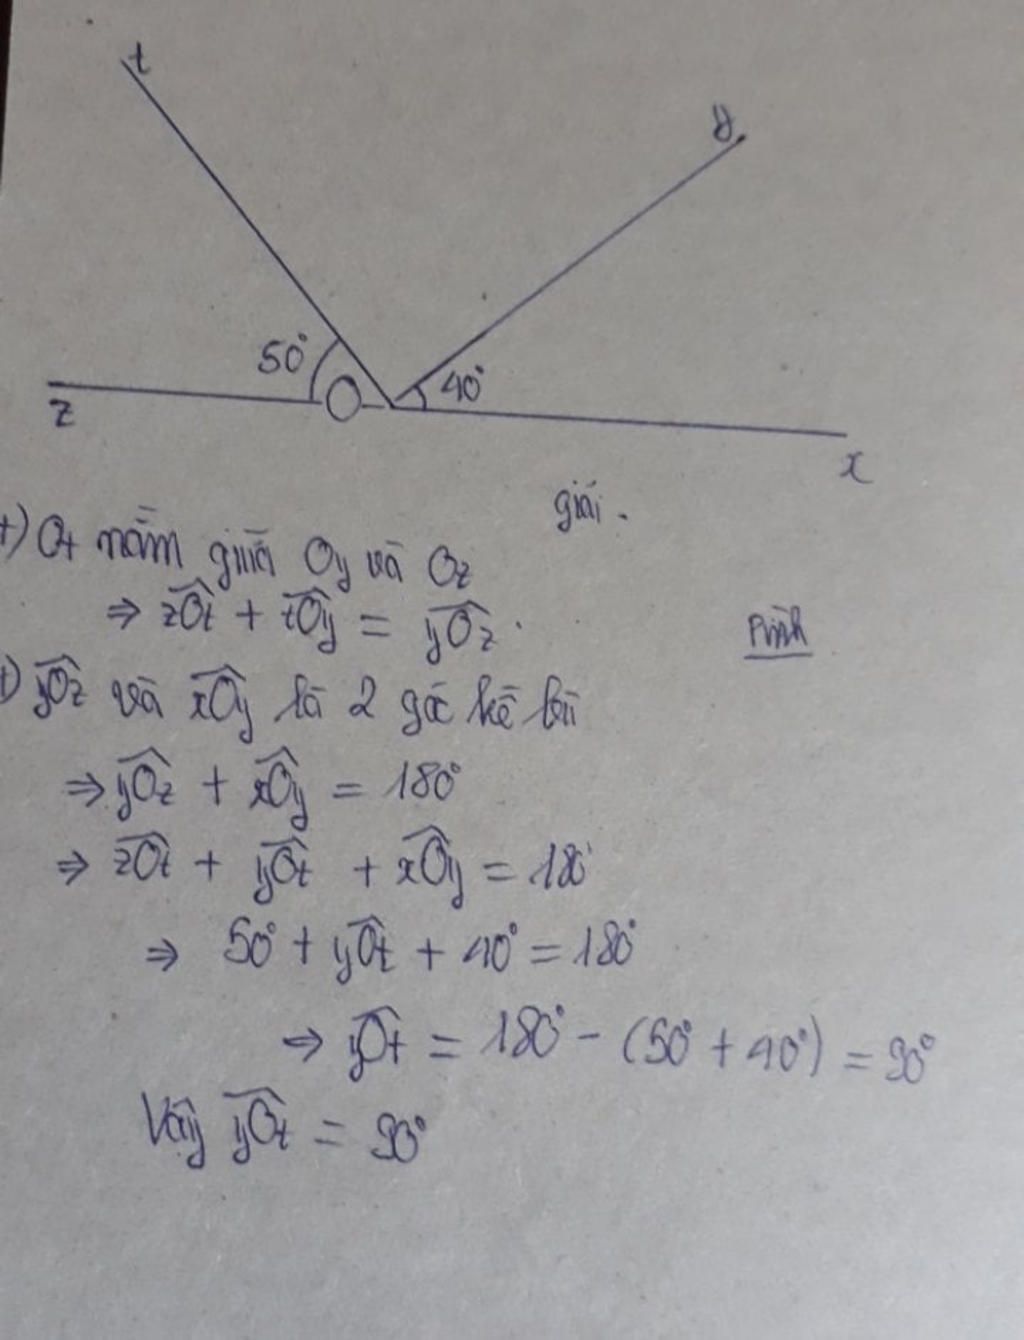 t
y
50°
40°
O
z
x
giải.
+) Ot nằm giữa Oy và Oz
⇒ zÔt + tÔy = yÔz.
+) yÔz và xÔy là 2 góc kề bù
⇒ yÔz + xÔy = 180°
⇒ zÔt + yÔt + xÔy = 180°
⇒ 50° + yÔt + 40° = 180°
⇒ yÔt = 180° - (50° + 40°) = 90°
Vậy yÔt = 90°